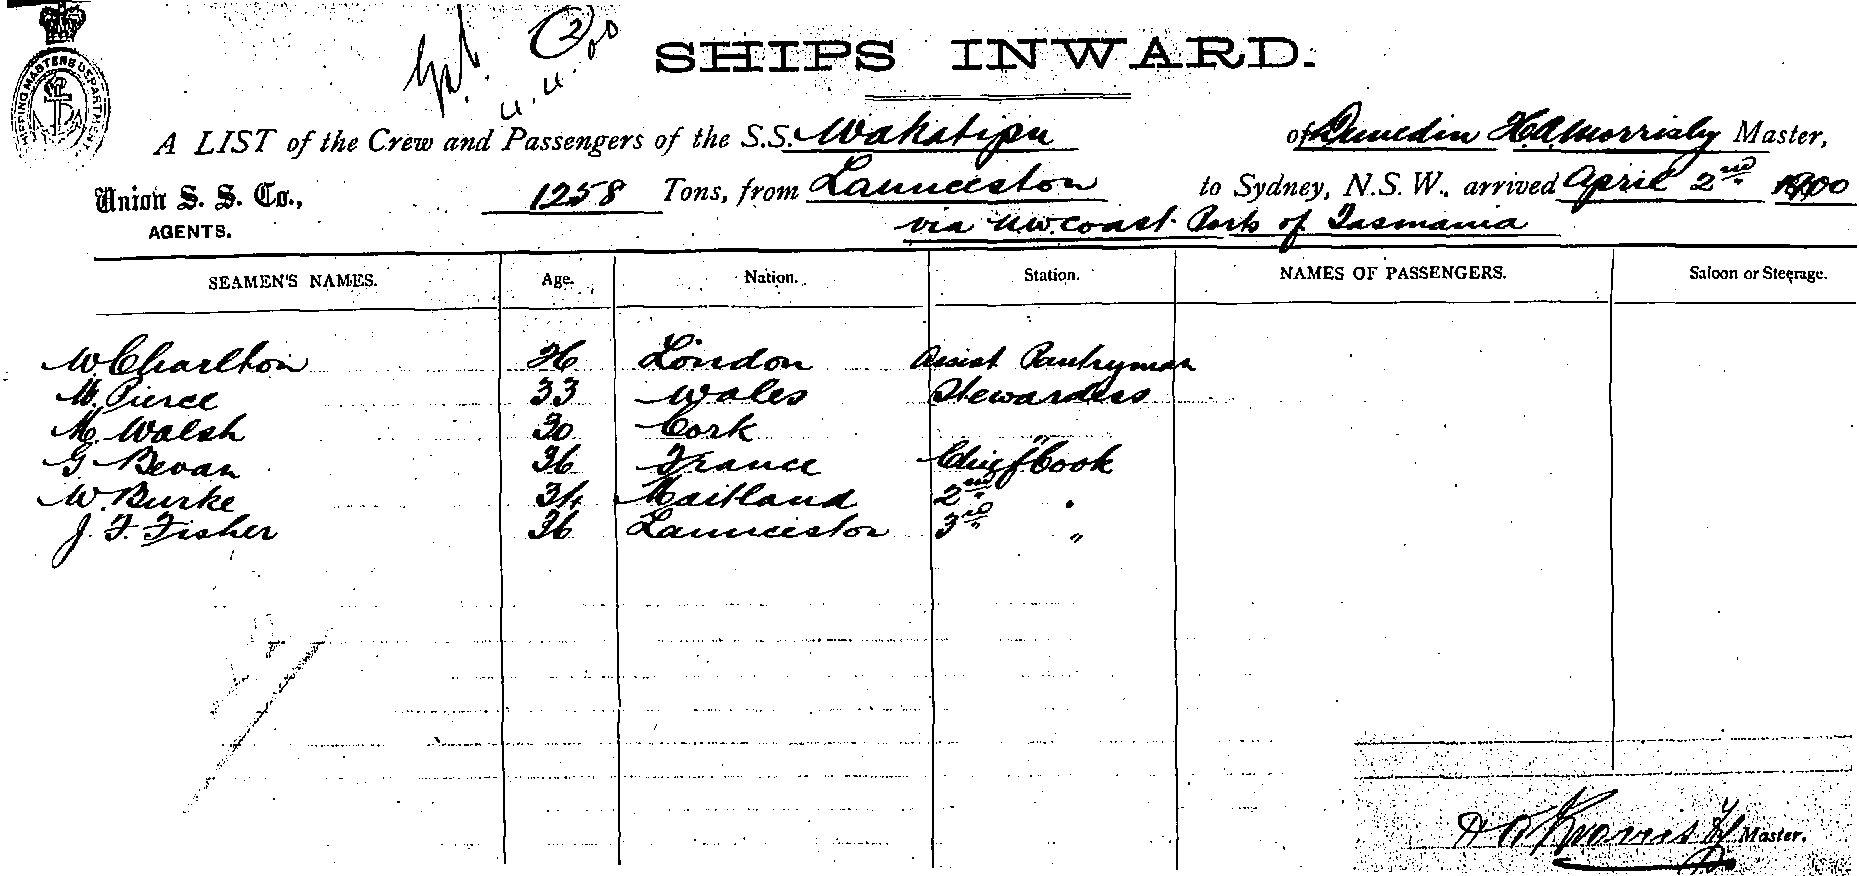 SHIPS INWARD.
SHIPPING MASTERS DEPARTMENT
A LIST of the Crew and Passengers of the S.S. Wakatipu of Dunedin H.A. Morrisby Master,
Union S. S. Co., 1258 Tons, from Launceston to Sydney, N.S.W., arrived April 2nd 1900
AGENTS. via N.W. Coast Ports of Tasmania
SEAMEN'S NAMES. Age. Nation. Station. NAMES OF PASSENGERS. Saloon or Steerage.
W. Charlton 26 London Assist Pantryman
M. Pierce 33 Wales Stewardess
M. Walsh 30 Cork "
G Bevan 36 France Chief Cook
W. Burke 34 Maitland 2nd "
J. F. Fisher 36 Launceston 3rd "
Master.